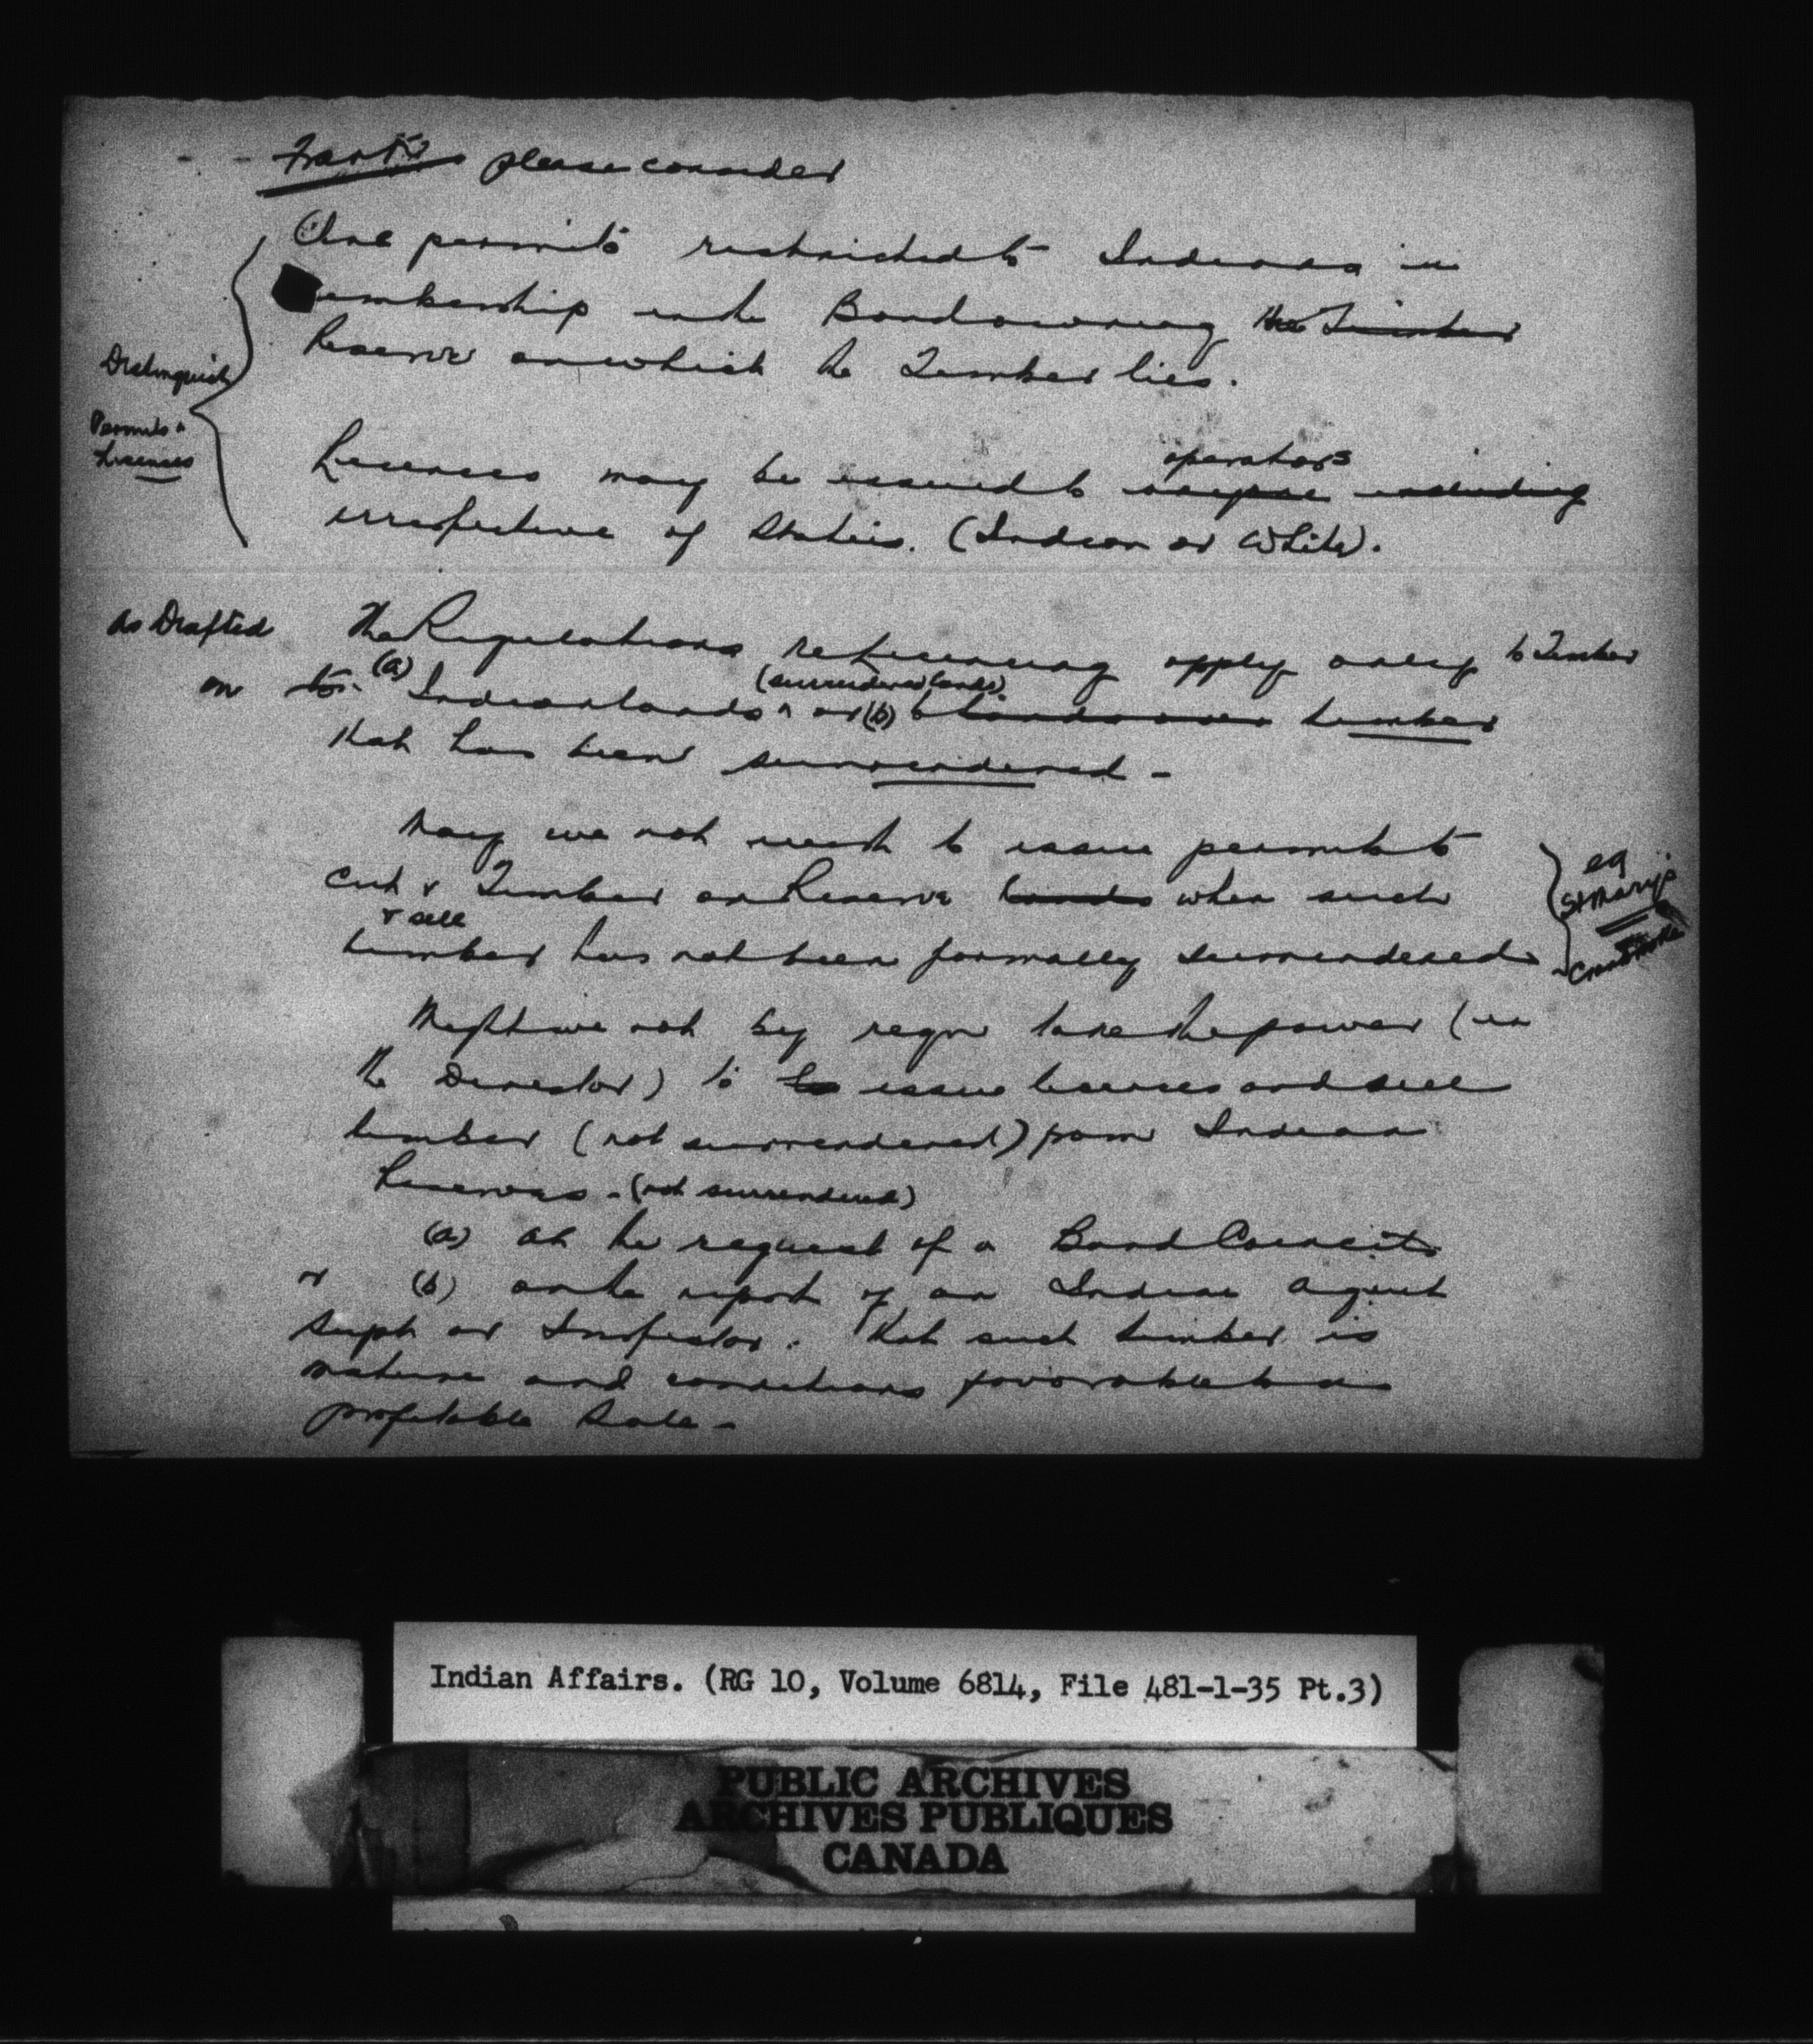 please consider
Are permits restricted to Indians in
membership in the Band owning the Timber
Reserve on which the Timber lies.
Distinguish
Permits &
Licences
operators
Licences may be issued to including
irrespective of Status. (Indian or White).
As Drafted The Regulations re licensing apply only to Timber
on to (a) Indian lands (surrendered lands) or (b) timber
that has been surrendered -
May we not wish to issue permits to
cut & Timber on Reserve lands when such
& sell
timber has not been formally surrendered
eg
St Mary's
Might we not by regn take the power (in
the Director) to to issue licences and sell
timber (not surrendered) from Indian
Reserves - (not surrendered)
(a) at the request of a Band Council
or (b) on the report of an Indian Agent
Supt or Inspector. that such timber is
mature and conditions favorable to a
profitable Sale -
Indian Affairs. (RG 10, Volume 6814, File 481-1-35 Pt.3)
PUBLIC ARCHIVES
ARCHIVES PUBLIQUES
CANADA